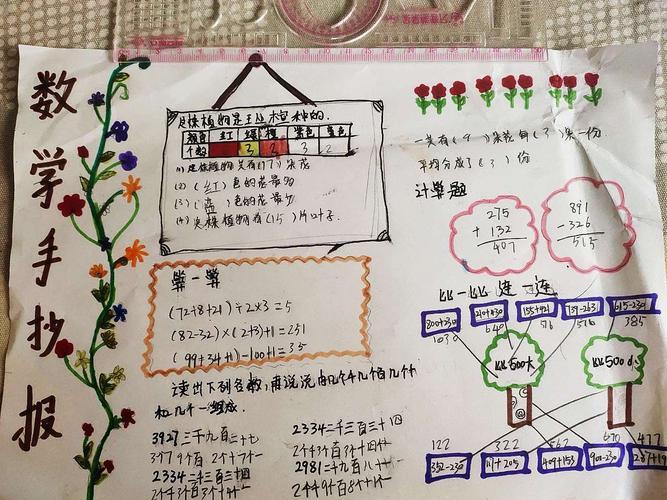 数学手抄报
颜色 红 绿 橙 紫色 蓝色
个数 3 2 3 2
(1) 这棵植物共有(17)朵花
(2) (红)色的花最多
(3) (蓝)色的花最少
(4) 这棵植物有(15)片叶子.
一共有(9)朵花 每(3)朵一份
平均分成了(3)份
计算题
275
+ 132
407
891
- 326
515
算一算
(72+8+21)÷2×3=5
(82-32)×(2+3)+1=251
(99+34+1)-100+1=35
比一比 连一连
800+230
210+430
155+421
739-263
615-230
1030
640
516
516
385
比500大
比500小
122
322
562
670
477
352-230
117+205
409+153
901-230
读出下列各数,再说说由几个千几个百几个十
和几个一组成.
3927 三千九百二十七
3个千9个百2个十7个一
2334 二千三百三十四
2个千3个百3个十4个一
2334 二千三百三十四
2个千3个百3个十4个一
2981 二千九百八十一
2个千9个百8个十1个一